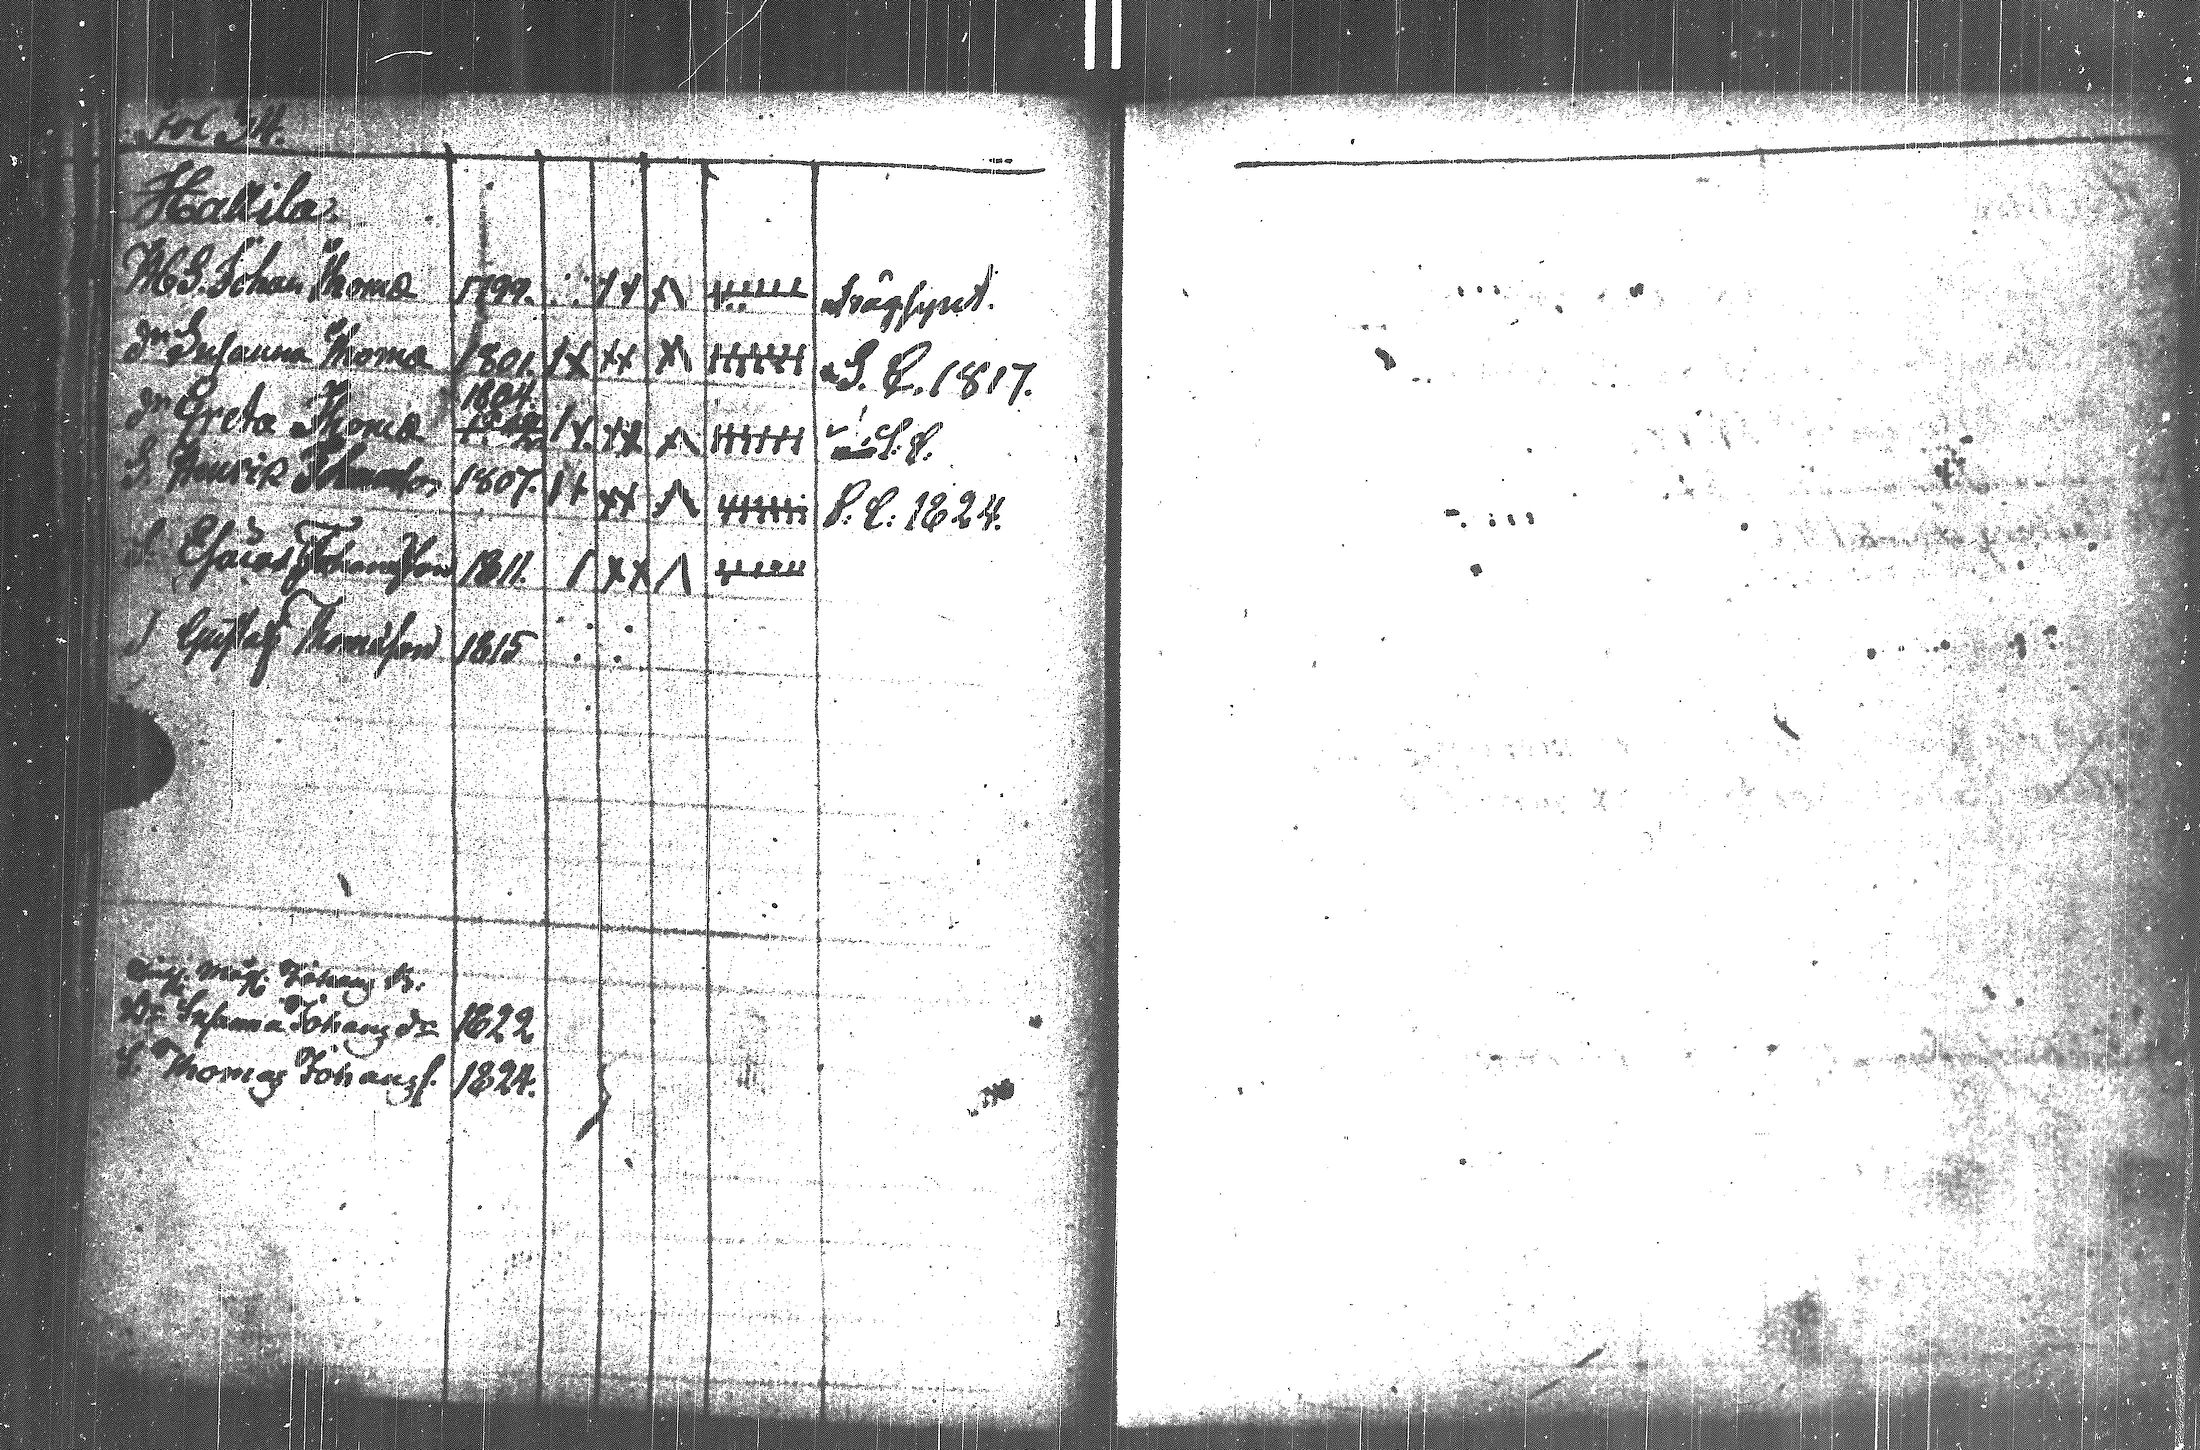 Fol 34.
Hallila.
M S. Johan Thomæ 1799. trögsynt.
dr Susanna Thomæ 1801. S. C. 1817.
1804.
dr Greta Thomæ S. C.
S. Henrik Thomasson 1807. S. C. 1824.
S. Esaias Thomasson 1811.
S Gustaf Thomasson 1815
Johans
Dr Susanna Johans dr 1822
S. Thomas Johans s. 1824.